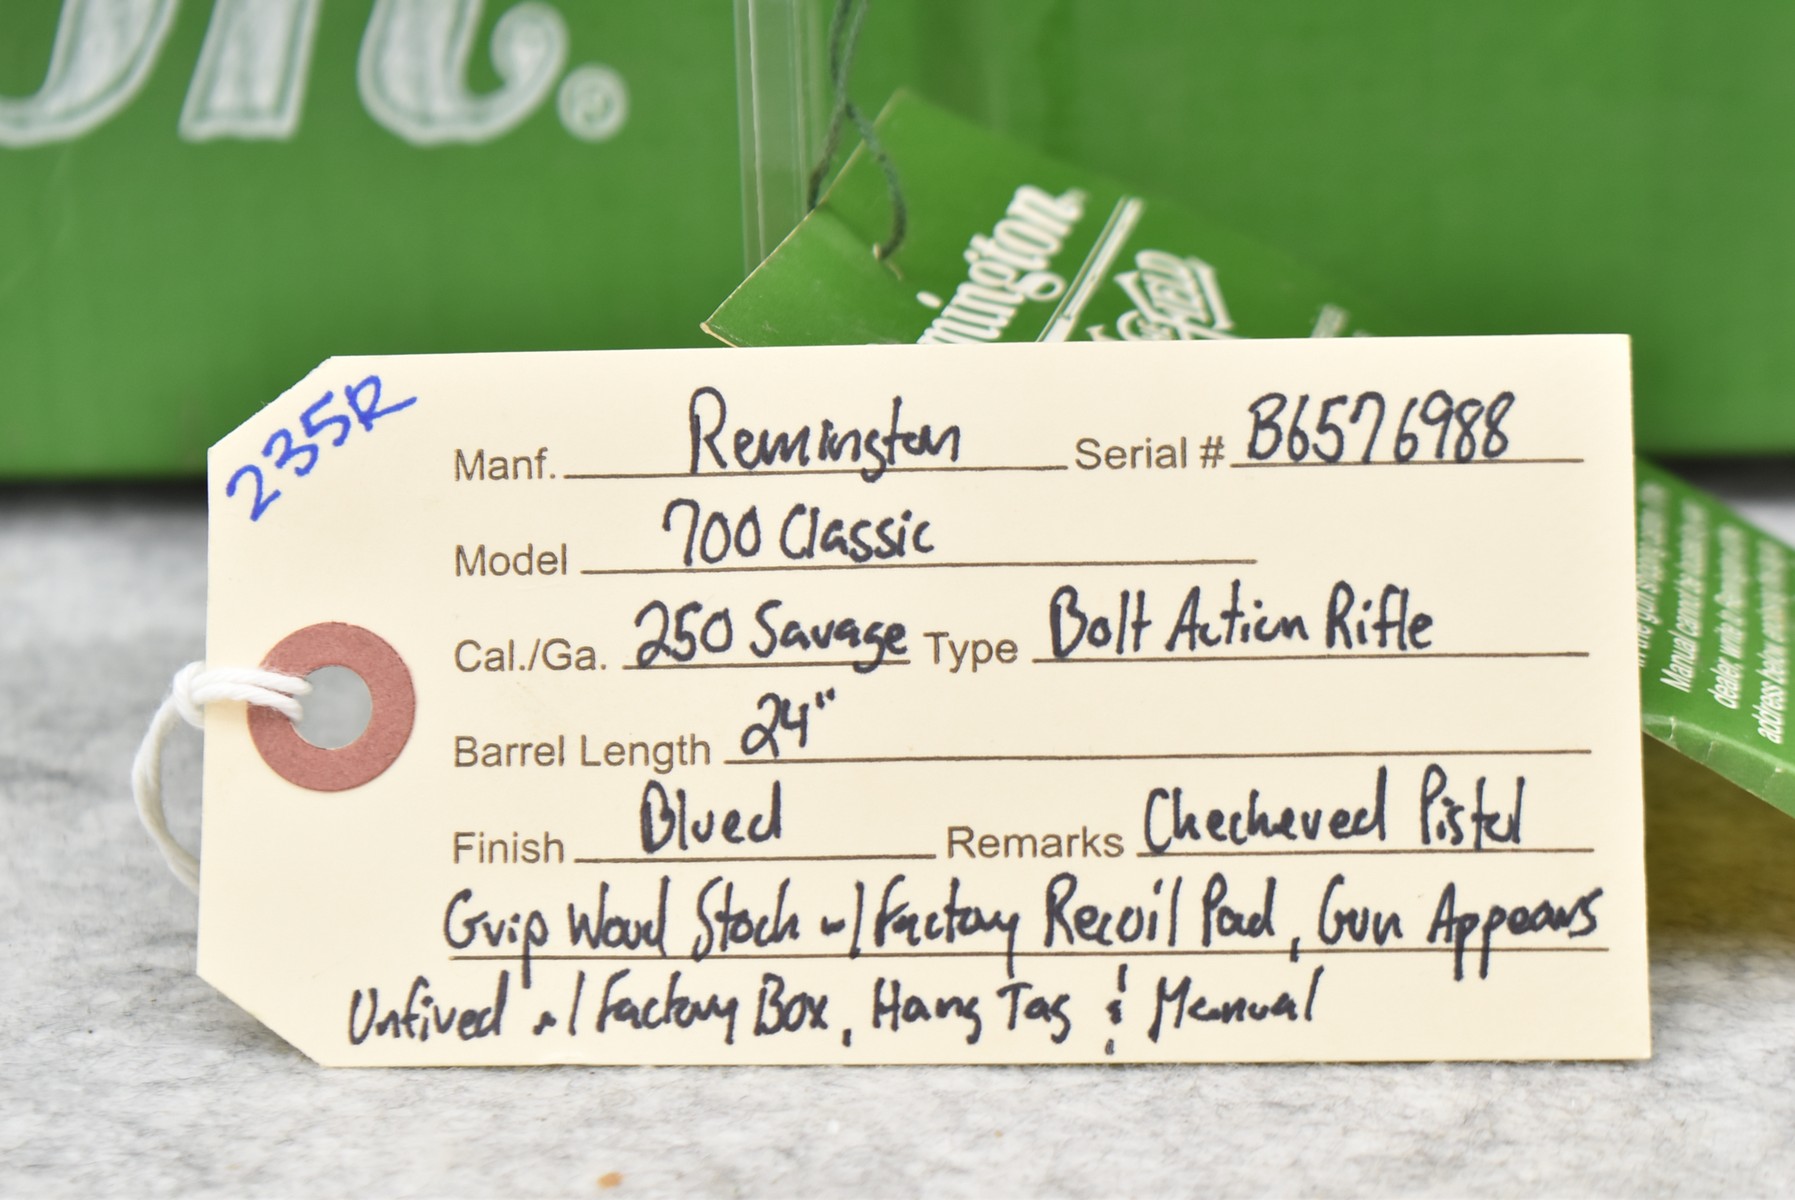 ®
mington
& FIELD
235R
Manf. Remington Serial # B6576988
Model 700 Classic
Cal./Ga. 250 Savage Type Bolt Action Rifle
Barrel Length 24"
Finish Blued Remarks Checkered Pistol
Grip Wood Stock w/ Factory Recoil Pad, Gun Appears
Unfired w/ Factory Box, Hang Tag & Manual
Manual cannot be
dealer, write to Remington
address below